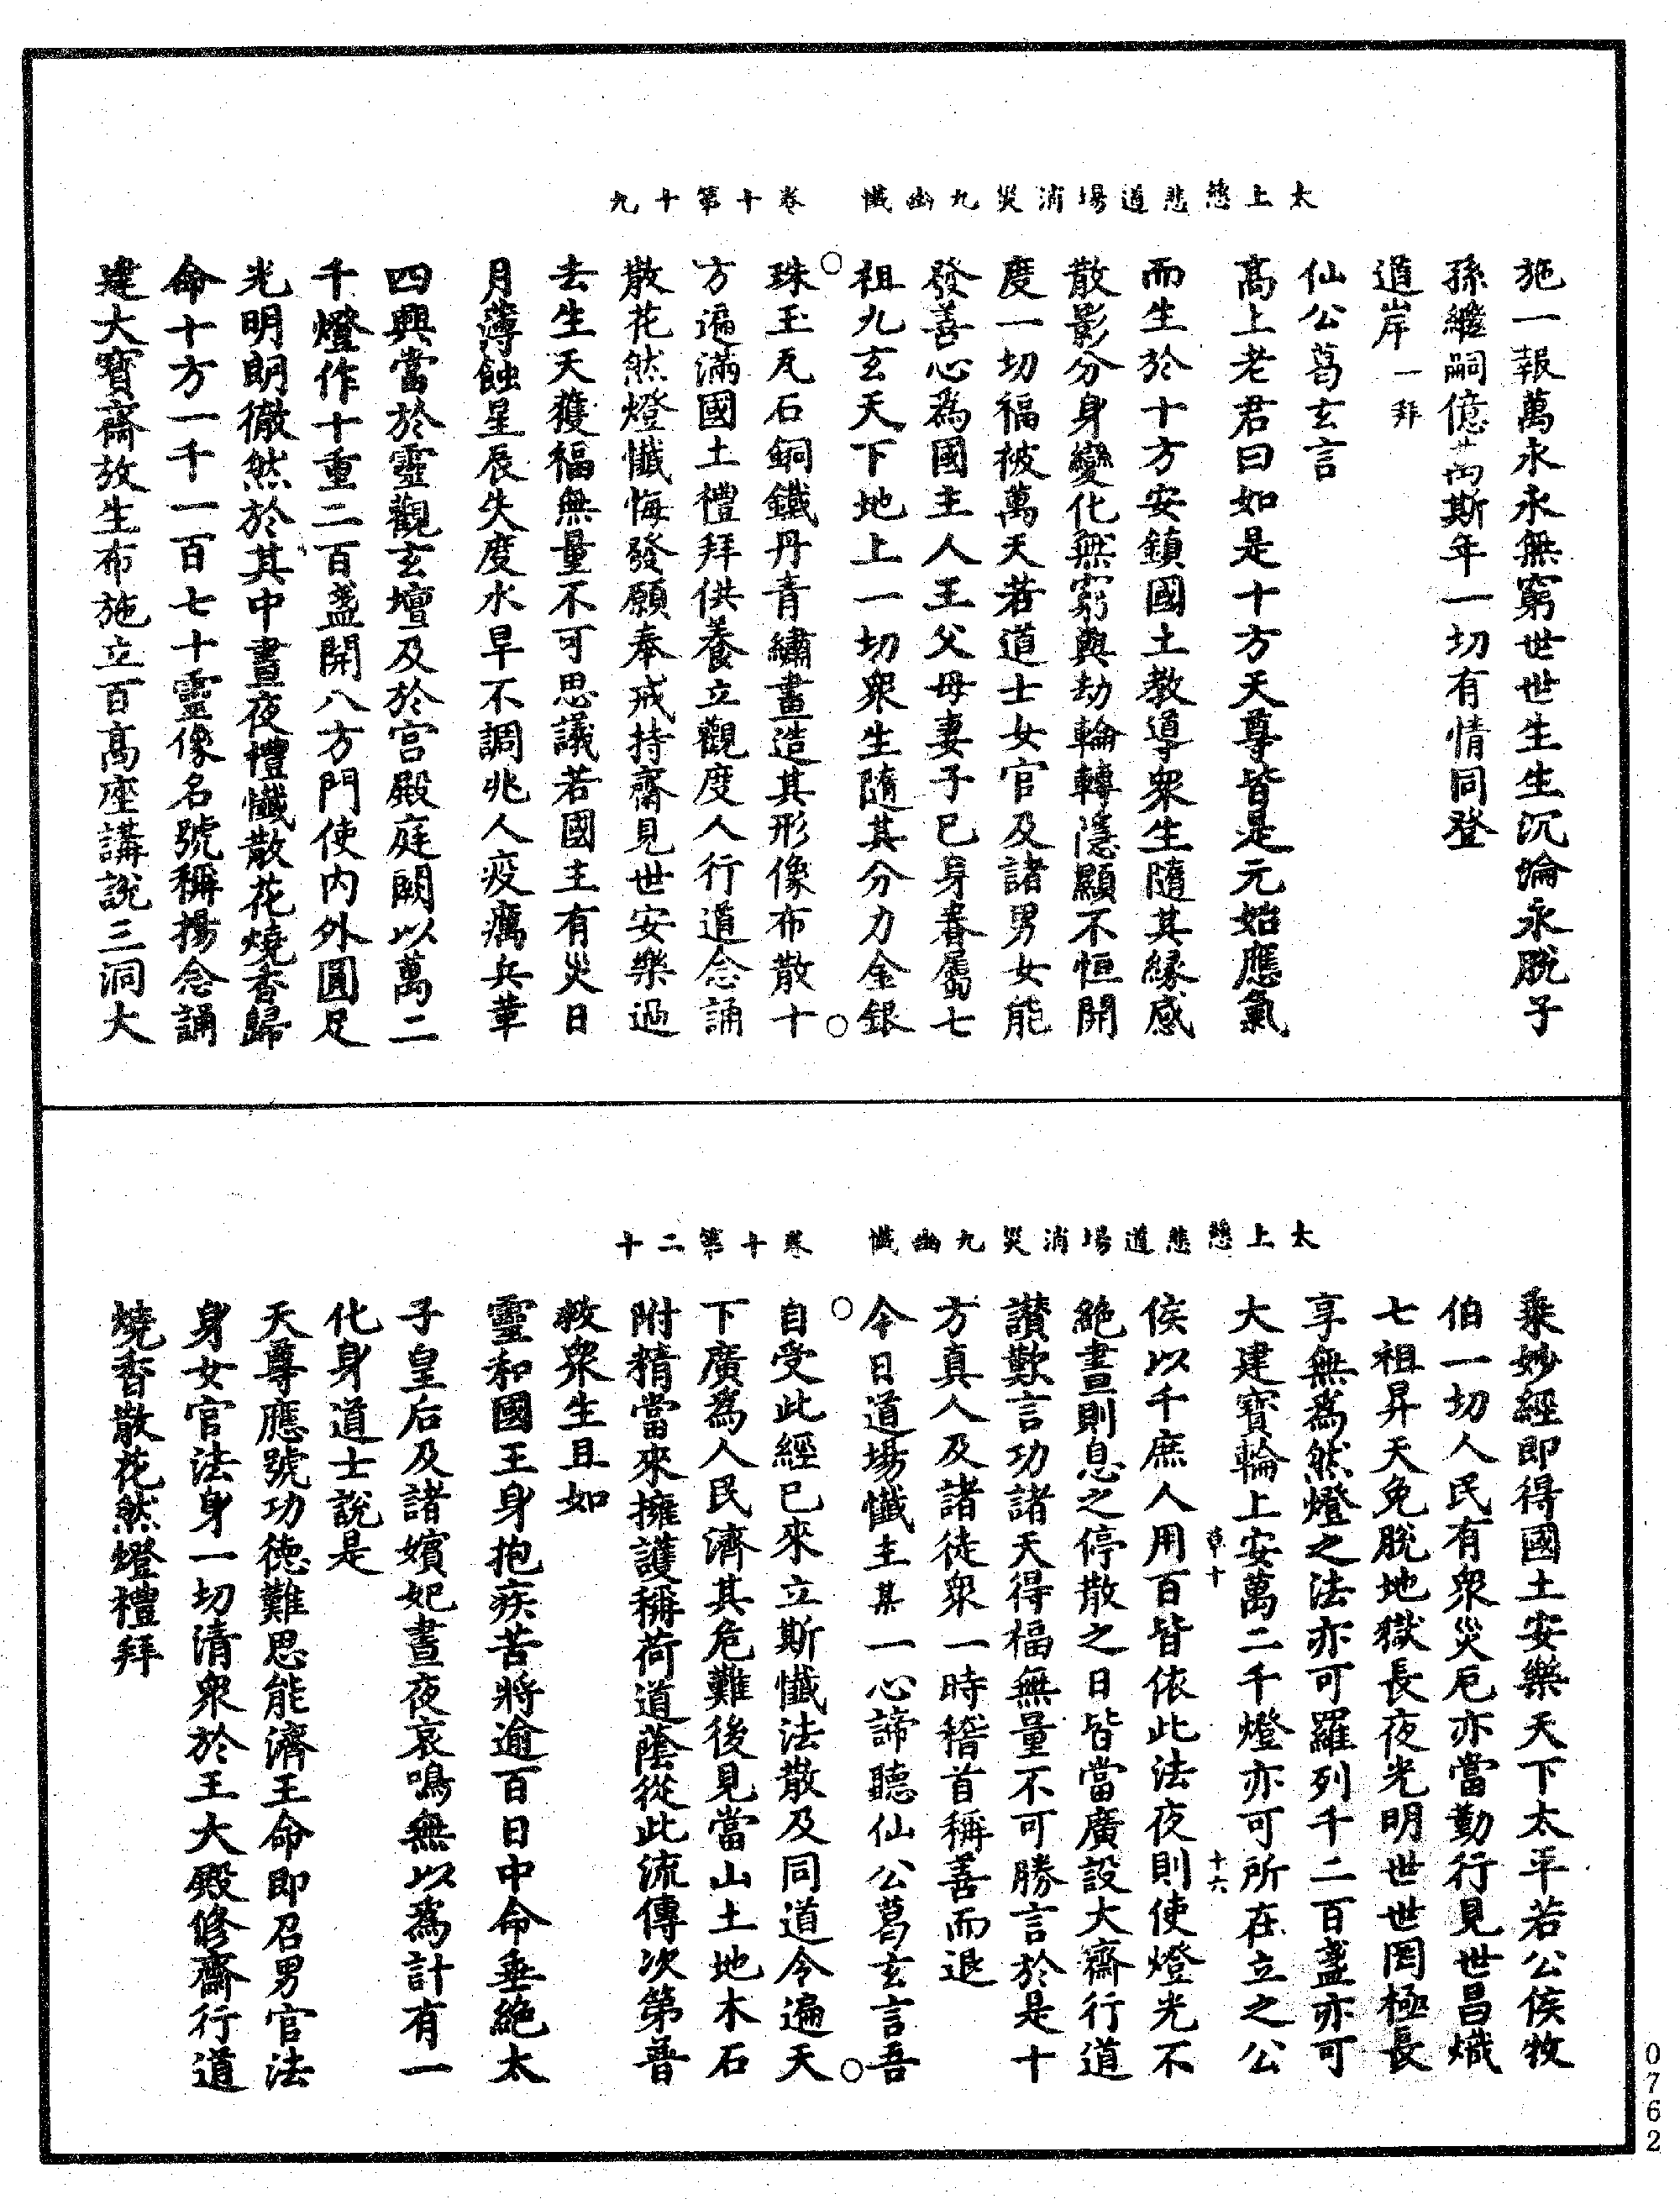 太上慈悲道場消災九幽懺　卷十第十九
施一報萬永永無窮世世生生沉淪永脫子
孫繼嗣億萬斯年一切有情同登
道岸一拜
仙公葛玄言
高上老君曰如是十方天尊皆是元始應氣
而生於十方安鎮國土教導衆生隨其緣感
散影分身變化無窮與劫輪轉隱顯不恒開
度一切福被萬天若道士女官及諸男女能
發善心為國主人王父母妻子已身眷屬七
祖九玄天下地上一切衆生隨其分力金銀
珠玉瓦石銅鐵丹青繡畫造其形像布散十
方遍滿國土禮拜供養立觀度人行道念誦
散花然燈懺悔發願奉戒持齋見世安樂過
去生天獲福無量不可思議若國主有災日
月薄蝕星辰失度水旱不調兆人疫癘兵革
四興當於靈觀玄壇及於宮殿庭闕以萬二
千燈作十重二百盞開八方門使内外圓足
光明朗徹然於其中晝夜禮懺散花燒香歸
命十方一千一百七十靈像名號稱揚念誦
建大寶齋放生布施立百高座講說三洞大
太上慈悲道場消災九幽懺　卷十第二十
乘妙經即得國土安樂天下太平若公侯牧
伯一切人民有衆災厄亦當勤行見世昌熾
七祖昇天免脫地獄長夜光明世世罔極長
享無為然燈之法亦可羅列千二百盞亦可
大建寶輪上安萬二千燈亦可所在立之公
章十　十六
侯以千庶人用百皆依此法夜則使燈光不
絶晝則息之停散之日皆當廣設大齋行道
讚歎言功諸天得福無量不可勝言於是十
方真人及諸徒衆一時稽首稱善而退
今日道場懺主某一心諦聽仙公葛玄言吾
自受此經已來立斯懺法散及同道令遍天
下廣為人民濟其危難後見當山土地木石
附精當來擁護稱荷道蔭從此流傳次第普
救衆生且如
靈和國王身抱疾苦將逾百日中命垂絶太
子皇后及諸嬪妃晝夜哀鳴無以為計有一
化身道士說是
天尊應號功德難思能濟王命即召男官法
身女官法身一切清衆於王大殿修齋行道
燒香散花然燈禮拜
0762